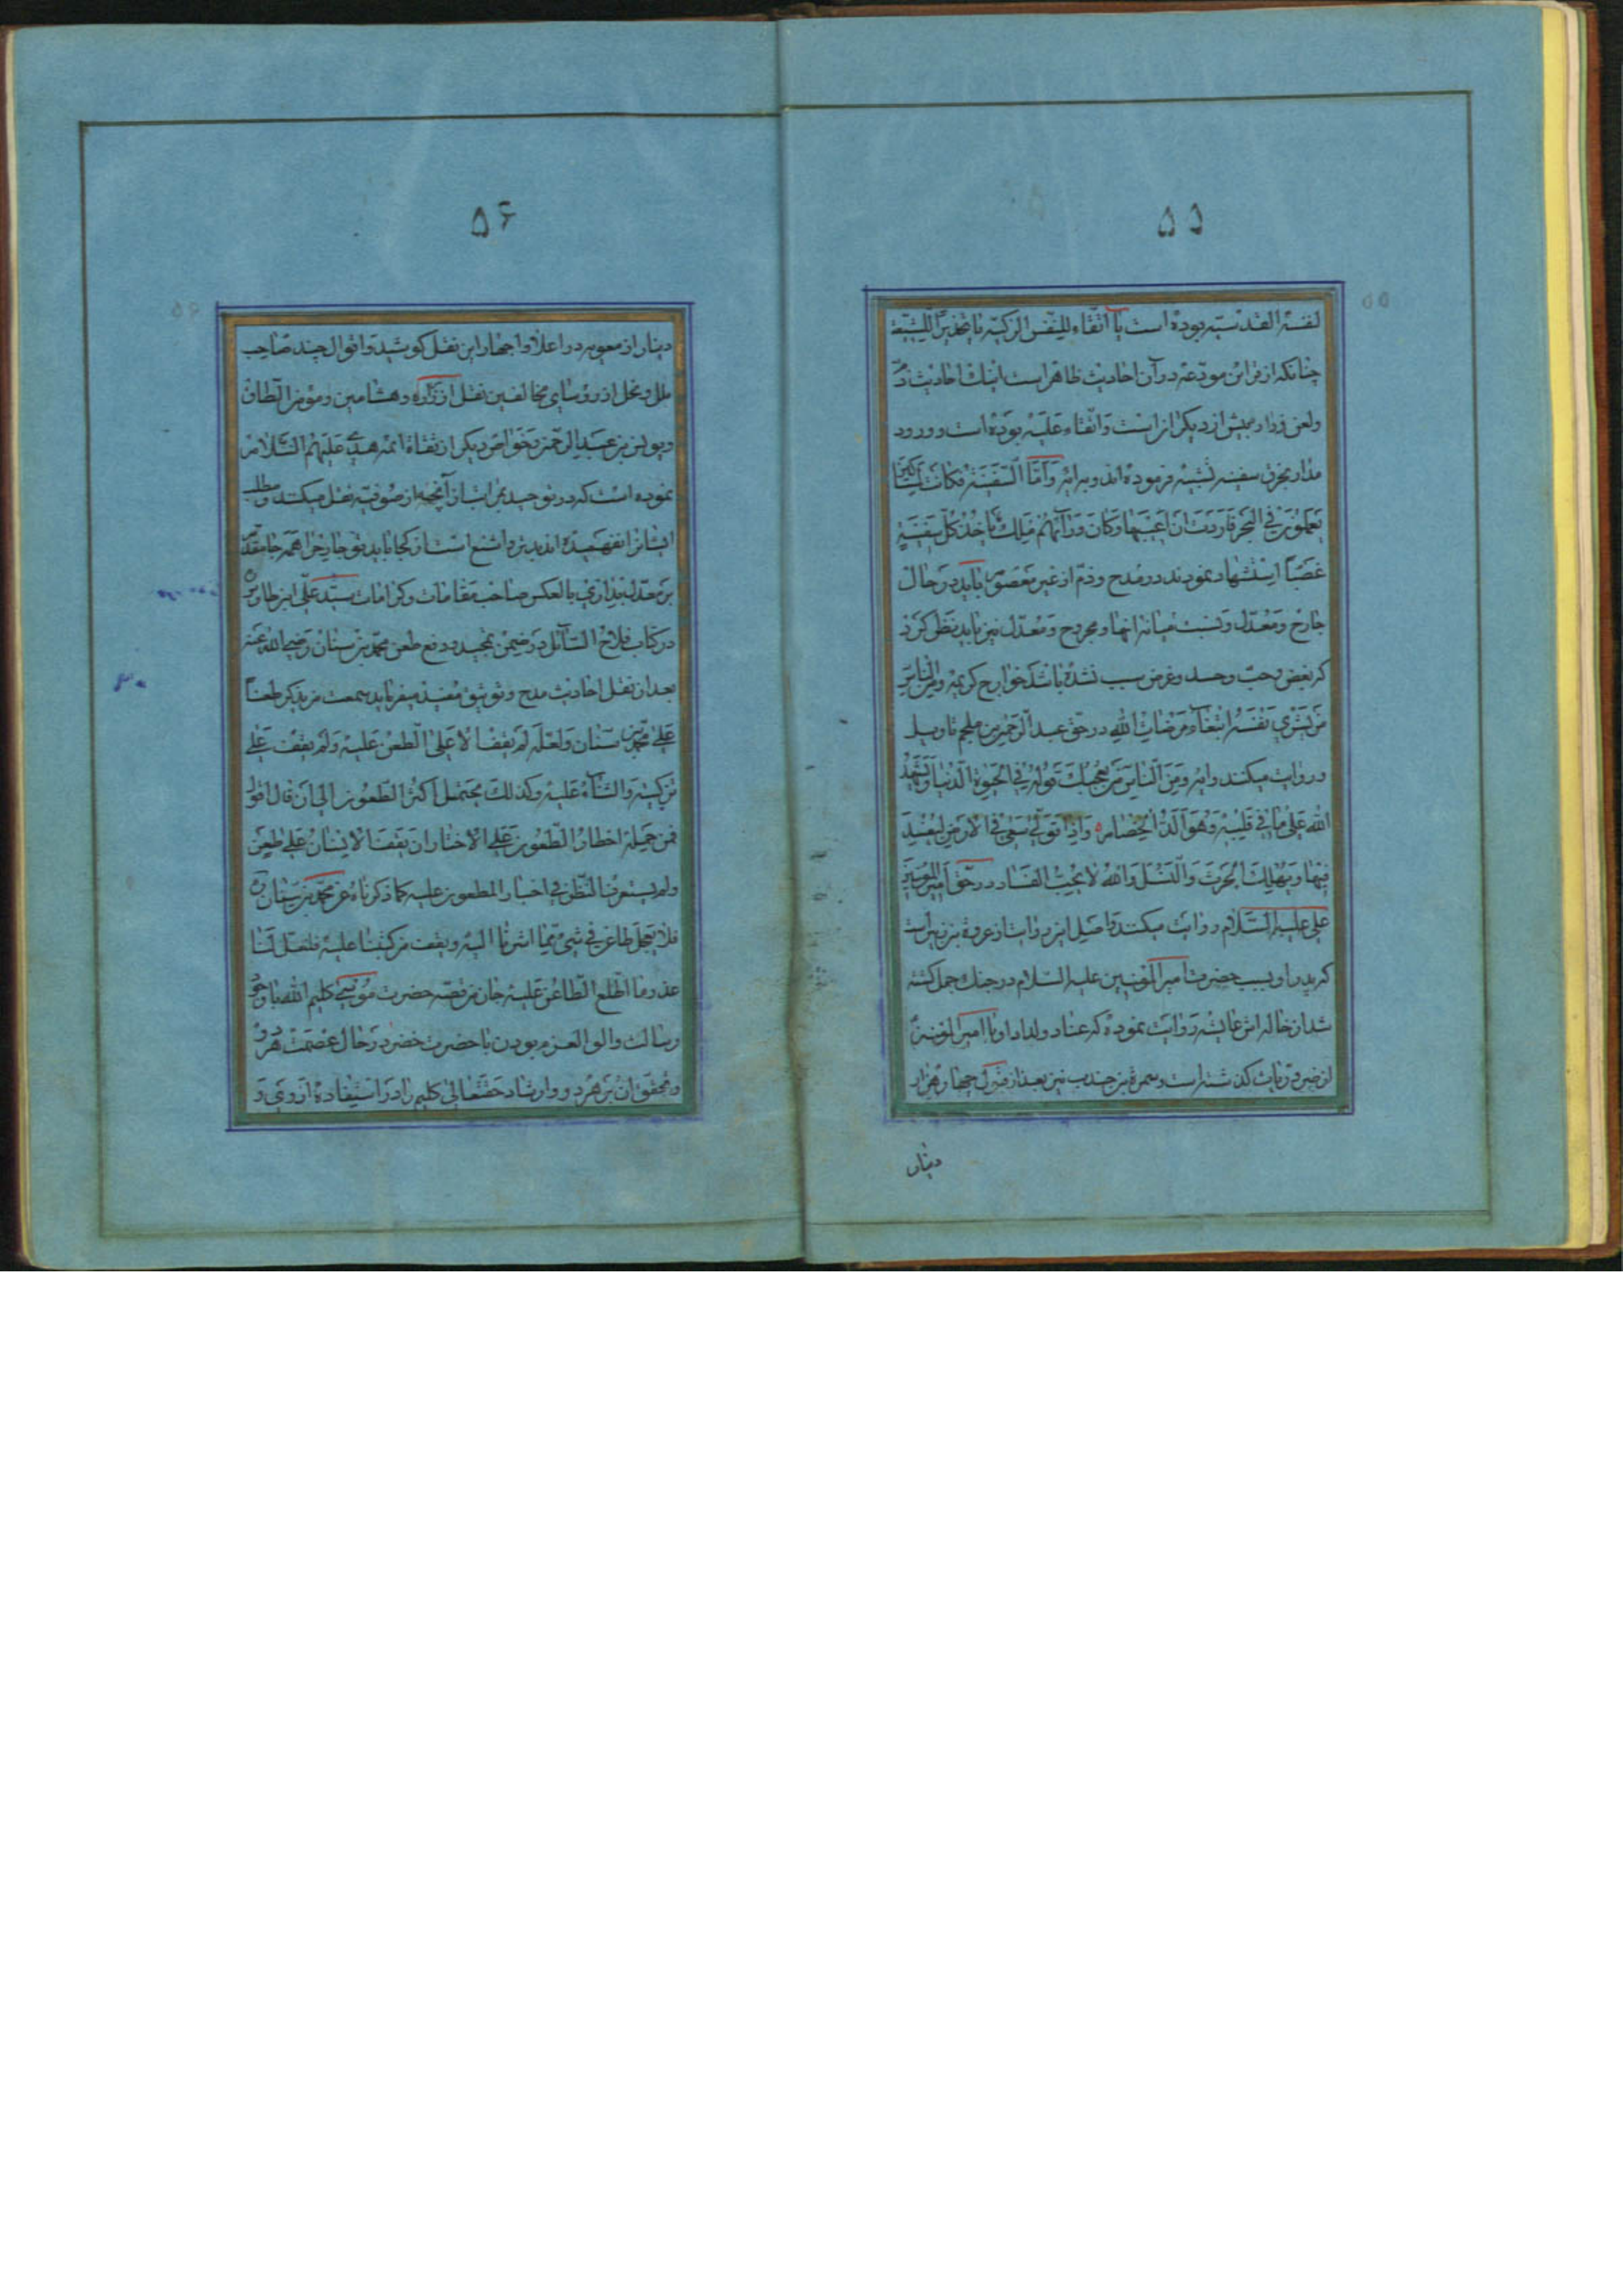 ۵۵
لنفسه القدسیه بوده است یا اتقاء للنفس الزکیه یا تحذیرا للشیعة
چنانکه از قراین مودعه در آن احادیث ظاهر است اینک احادیث ذم
ولعن زراره بیش از دیگران است واتقاء علیه بوده است وورود
مدار بخرق سفینه تشبیه فرموده اند و برایه وَاَمَّا السَّفینَةُ فَکانَت لِمَساکینَ
یَعمَلُونَ فی البَحرِ فَاَرَدتُ اَن اَعیبَها وَکانَ وَرآءَهُم مَلِکٌ یَاخُذُ کُلَّ سَفینَةٍ
غَصبًا استشهاد نمودند در مدح وذم از غیر معصوم باید در حال
جارح ومعدل ونسبت میانه انها ومجروح ومعدل نیز باید نظر کرد
که بغض وحب وحسد وغرض سبب نشده باشد خوارج کریمه ومِنَ النّاسِ
مَن یَشری نَفسَهُ ابتِغآءَ مَرضاتِ اللهِ در حق عبد الرحمن بن ملجم تاویل
وروایت میکنند وایه وَمِنَ النّاسِ مَن یُعجِبُکَ قَولُهُ فِی الحَیوةِ الدُّنیا وَیُشهِدُ
اللهَ عَلی ما فی قَلبِهِ وَهُوَ اَلَدُّ الخِصامِ وَاِذا تَوَلّی سَعی فِی الاَرضِ لِیُفسِدَ
فیها وَیُهلِکَ الحَرثَ وَالنَّسلَ وَاللهُ لا یُحِبُّ الفَساد در حق امیر المومنین
علی علیه السلام روایت میکنند واصل این روایت از عروة بن زبیر است
که پدر او بسبب حضرت امیر المومنین علیه السلام در جنک جمل کشته
شد از خاله اش عایشه روایت نموده که عناد ولداد او با امیر المومنین
از ضروریات کذشته است وسمرة بن جندب نیز بعد از قبول چهار هزار
دینار
۵۶
دینار از معویه در اعلان واجهار این نقل کوشید واقوال چند صاحب
ملل ونحل از روسای مخالفین نقل از زراره وهشامین ومؤمن الطاق
ویونس بن عبد الرحمن وخواص دیکر از ثقاة ائمه هدی علیهم السلام
نموده است که در توحید بمراتب از آنچه از صوفیه نقل میکنند ومطلب
ایشان را نفهمیده اند بدتر واشنع است از کجا باید قول جارح را همه جا مقدم
بر معدل بداری بالعکس صاحب مقامات وکرامات سید علی ابن طاوس
در کتاب فلاح السائل در ضمن تمجید ودفع طعن محمد بن سنان رضی الله عنه
بعد از نقل احادیث مدح وتوثیق مفید میفرماید سمعت من یذکر طعنا
علی محمد بن سنان ولعله لم یقف الا علی الطعن علیه ولم یقف علی
تزکیته والثناء علیه وکذلک یحتمل اکثر الطعون الی ان قال اقول
فمن جملة اخطار الطعون علی الاخیار ان یقف الانسان علی طعن
ولم یستوف النظر فی اخبار المطعون علیه کما ذکرناه عن محمد بن سنان
فلا یعجل طاعن فی شیء مما اشرنا الیه ویقف من کتبنا علیه فلعل لنا
عذر ما اطلع الطاعن علیه جان من قصه حضرت موسی کلیم الله با وجود
رسالت واولو العزم بودن با حضرت خضر در حال عصمت هر دو
وتحقق ان بر هر دو وارشاد حقتعالی کلیم را در استفاده از وی و